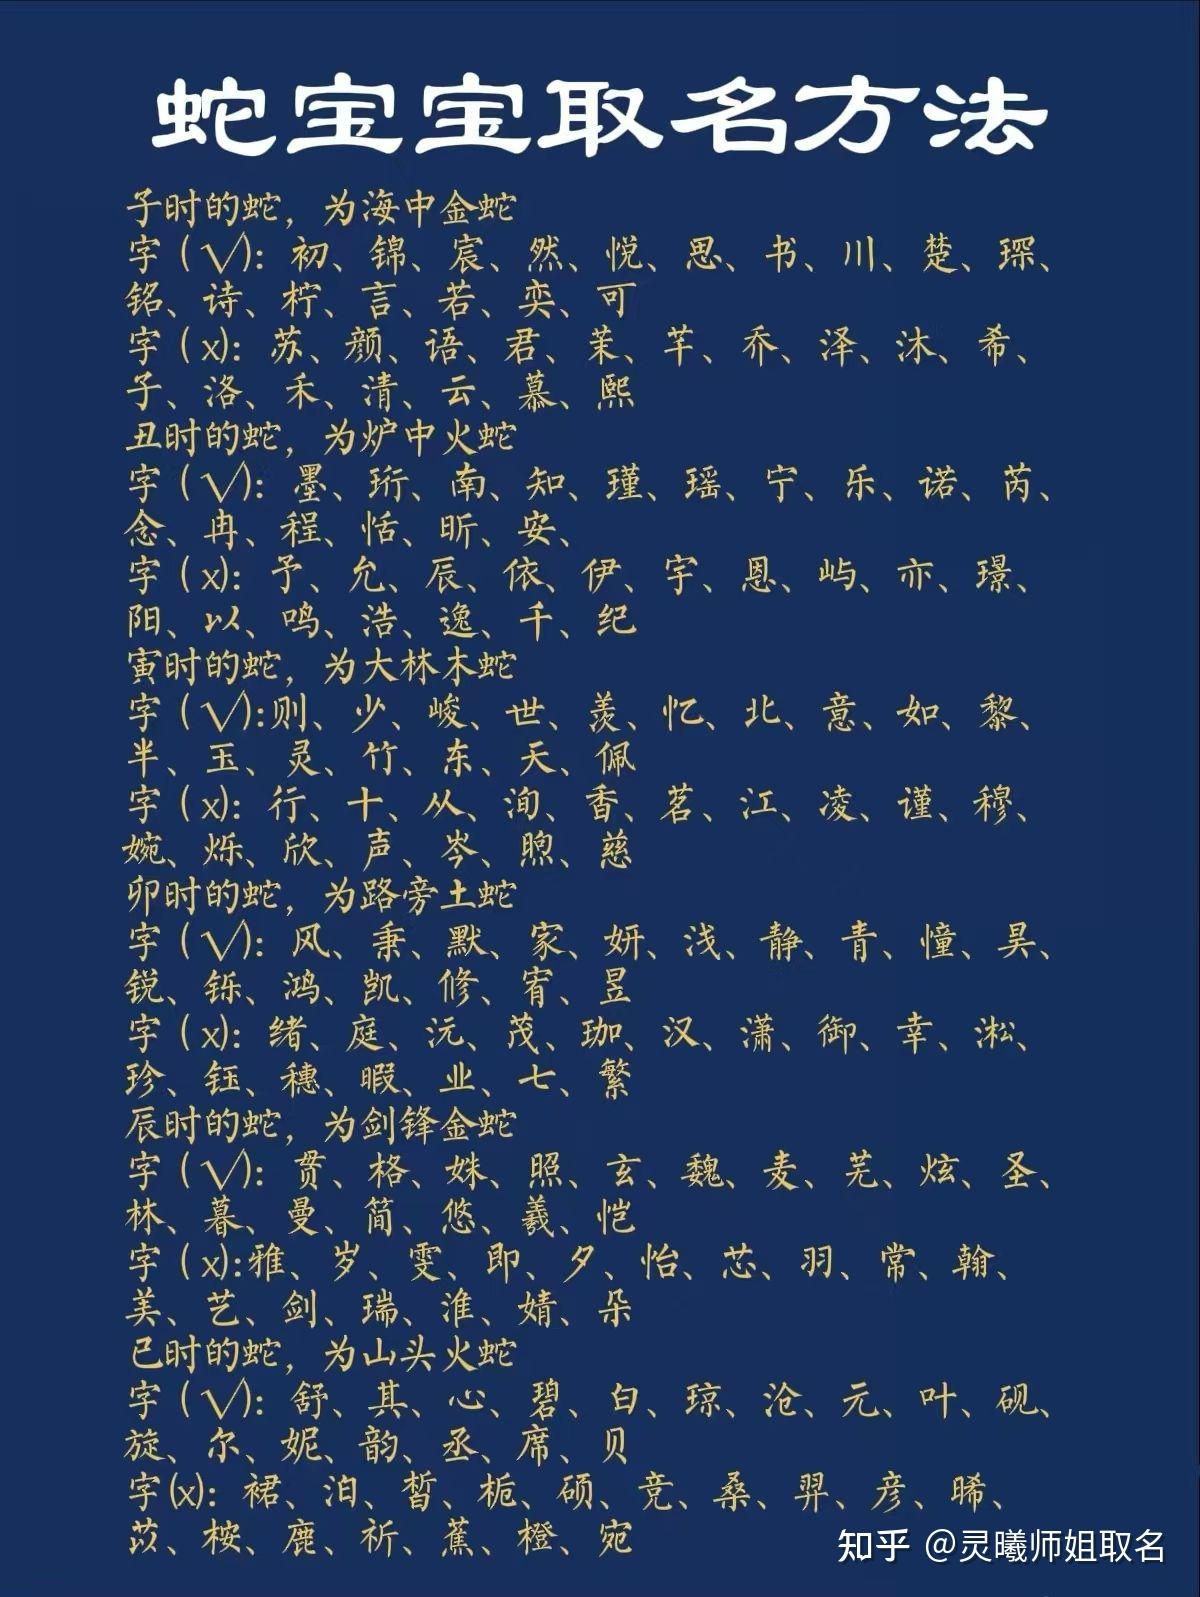 蛇宝宝取名方法
子时的蛇，为海中金蛇
字（√）：初、锦、宸、然、悦、思、书、川、楚、琛、
铭、诗、柠、言、若、奕、可
字（x）：苏、颜、语、君、茉、芊、乔、泽、沐、希、
子、洛、禾、清、云、慕、熙
丑时的蛇，为炉中火蛇
字（√）：墨、珩、南、知、瑾、瑶、宁、乐、诺、芮、
念、冉、程、恬、昕、安、
字（x）：予、允、辰、依、伊、宇、恩、屿、亦、璟、
阳、以、鸣、浩、逸、千、纪
寅时的蛇，为大林木蛇
字（√）：则、少、峻、世、羡、忆、北、意、如、黎、
半、玉、灵、竹、东、天、佩
字（x）：行、十、从、洵、香、茗、江、凌、谨、穆、
婉、烁、欣、声、岑、煦、慈
卯时的蛇，为路旁土蛇
字（√）：风、秉、默、家、妍、浅、静、青、憧、昊、
锐、铄、鸿、凯、修、宥、昱
字（x）：绪、庭、沅、茂、珈、汉、潇、御、幸、淞、
珍、钰、穗、暇、业、七、繁
辰时的蛇，为剑锋金蛇
字（√）：贯、格、姝、照、玄、魏、麦、芜、炫、圣、
林、暮、曼、简、悠、羲、恺
字（x）：雅、岁、雯、即、夕、怡、芯、羽、常、翰、
美、艺、剑、瑞、淮、婧、朵
已时的蛇，为山头火蛇
字（√）：舒、其、心、碧、白、琼、沧、元、叶、砚、
旋、尔、妮、韵、丞、席、贝
字(x)：裙、泊、皙、栀、硕、竞、桑、羿、彦、晞、
苡、桉、鹿、祈、蕉、橙、宛
知乎 @灵曦师姐取名